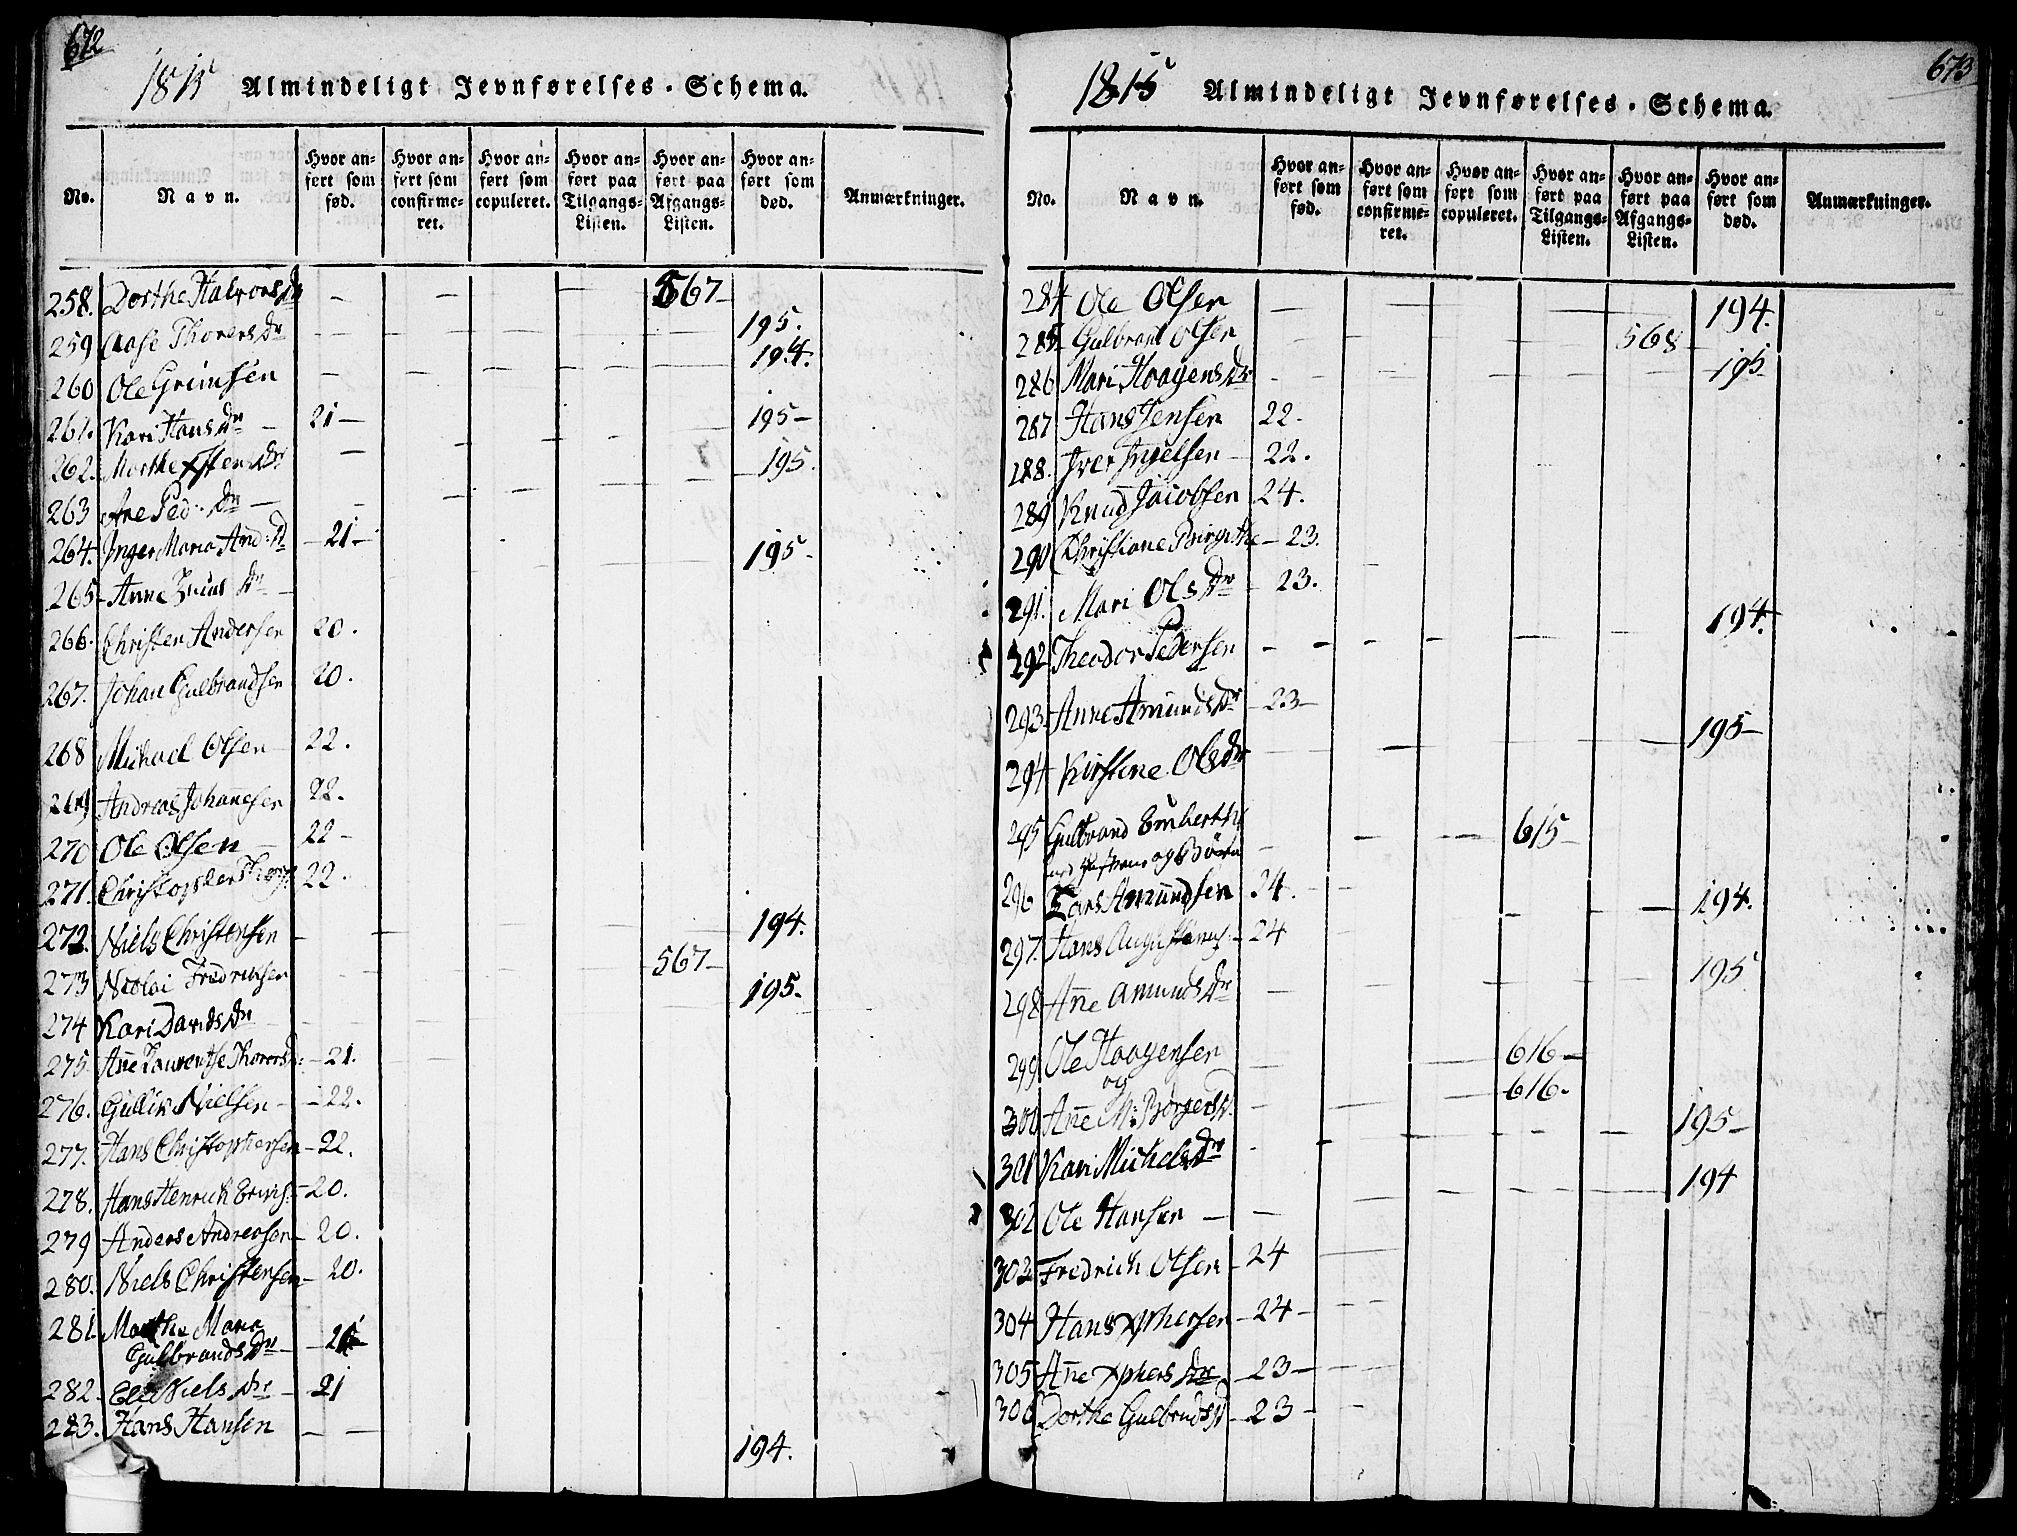 672
1815 Almindeligt Jevnførelses-Schema.
No. Navn. Hvor anført som fød. Hvor anført som confirmeret. Hvor anført som copuleret. Hvor anført paa Tilgangs-Listen. Hvor anført paa Afgangs-Listen. Hvor anført som død. Anmærkninger.
258. Dorthe Halvors Dr - - - - 567-
259 Aase Thorers Dr - - - - - 195.
260 Ole Grimsen - - - - - 194.
261. Kari Hans Dr - 21- 195-
262. Marthe Xsten Dr - - - - - 195.
263 Ane Ped: Dr - - - - - -
264. Inger Maria And: D -21-
265- Anne Dr - 195-
266. Christen Andersen 20.
267. Johan Gulbrandsen 20.
268 Michael Olsen - 22.
269 Andreas Johanesen 22.
270 Ole Olsen - 22-
271. Christopher 22.
272. Niels Christensen - - - - - 194.
273 Nicolai Fredrichsen - - - - 567-
274 Kari Davids Dr - - - - - 195.
275. Añe Laurentse Thorers D: -21.
276. Gullik Nielsen - -22.
277. Hans Christophersen -22.
278. Hans Henrich -20.
279 Anders Andersen - 20.
280. Niels Christensen - 20.
281. Marthe Maria
Gulbrands Dr - -21-
282. Eli Niels Dr - 21
283. Hans Hansen - - 194.
673
1815 Almindeligt Jevnførelses-Schema.
No. Navn. Hvor anført som fød. Hvor anført som confirmeret. Hvor anført som copuleret. Hvor anført paa Tilgangs-Listen. Hvor anført paa Afgangs-Listen. Hvor anført som død. Anmærkninger.
284 Ole Olsen - - - - - 194.
285 Gulbrand Olsen - - - - 568-
286 Mari Haagens Dr - - - - - -195-
287 Hans Jensen 22.
288. Iver Ingelsen - 22.
289 Knud Jacobsen 24.
290 Christiane -23.
291. Mari Ols Dr - 23.
292 Theodor Pedersen - - - - - 194.
293. Anne Amunds Dr -23-
294 Kirstine Ols Dr - - - - - 195-
295 Gulbrand
og Børn - - - 615-
296 Lars Amundsen 24. - - - - 194.
297. Hans - 24
298 Añe Amunds Dr - - - - - 195
299 Ole Haagensen - - - 616-
og
300 Añe M: Børgers D. - - - 616.
301 Kari Michels Dr - - - - - 195-
302 Ole Hansen - - - - - - 194
303 Fredrich Olsen - 24 -
304 Hans Xphersen -24-
305 Añe Xphers Dr -23-
306 Dorthe Gulbrands D -23-